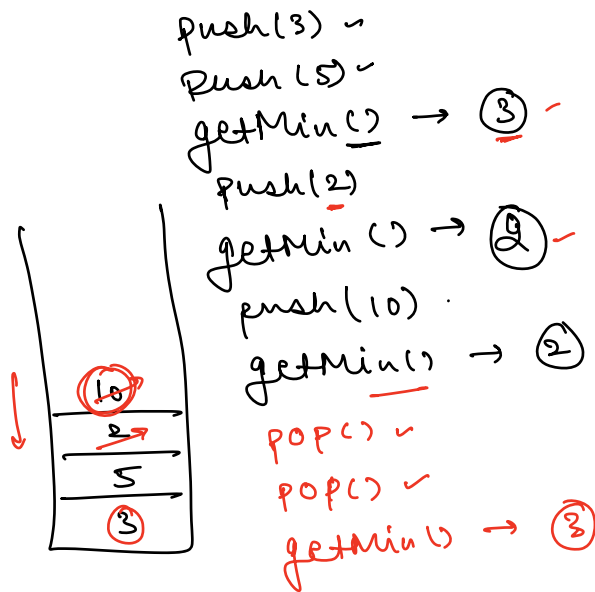 push(3) ✓
push(5) ✓
getMin() → 3
push(2)
getMin() → 2
push(10)
getMin() → 2
pop() ✓
pop() ✓
getMin() → 3
10
2
5
3